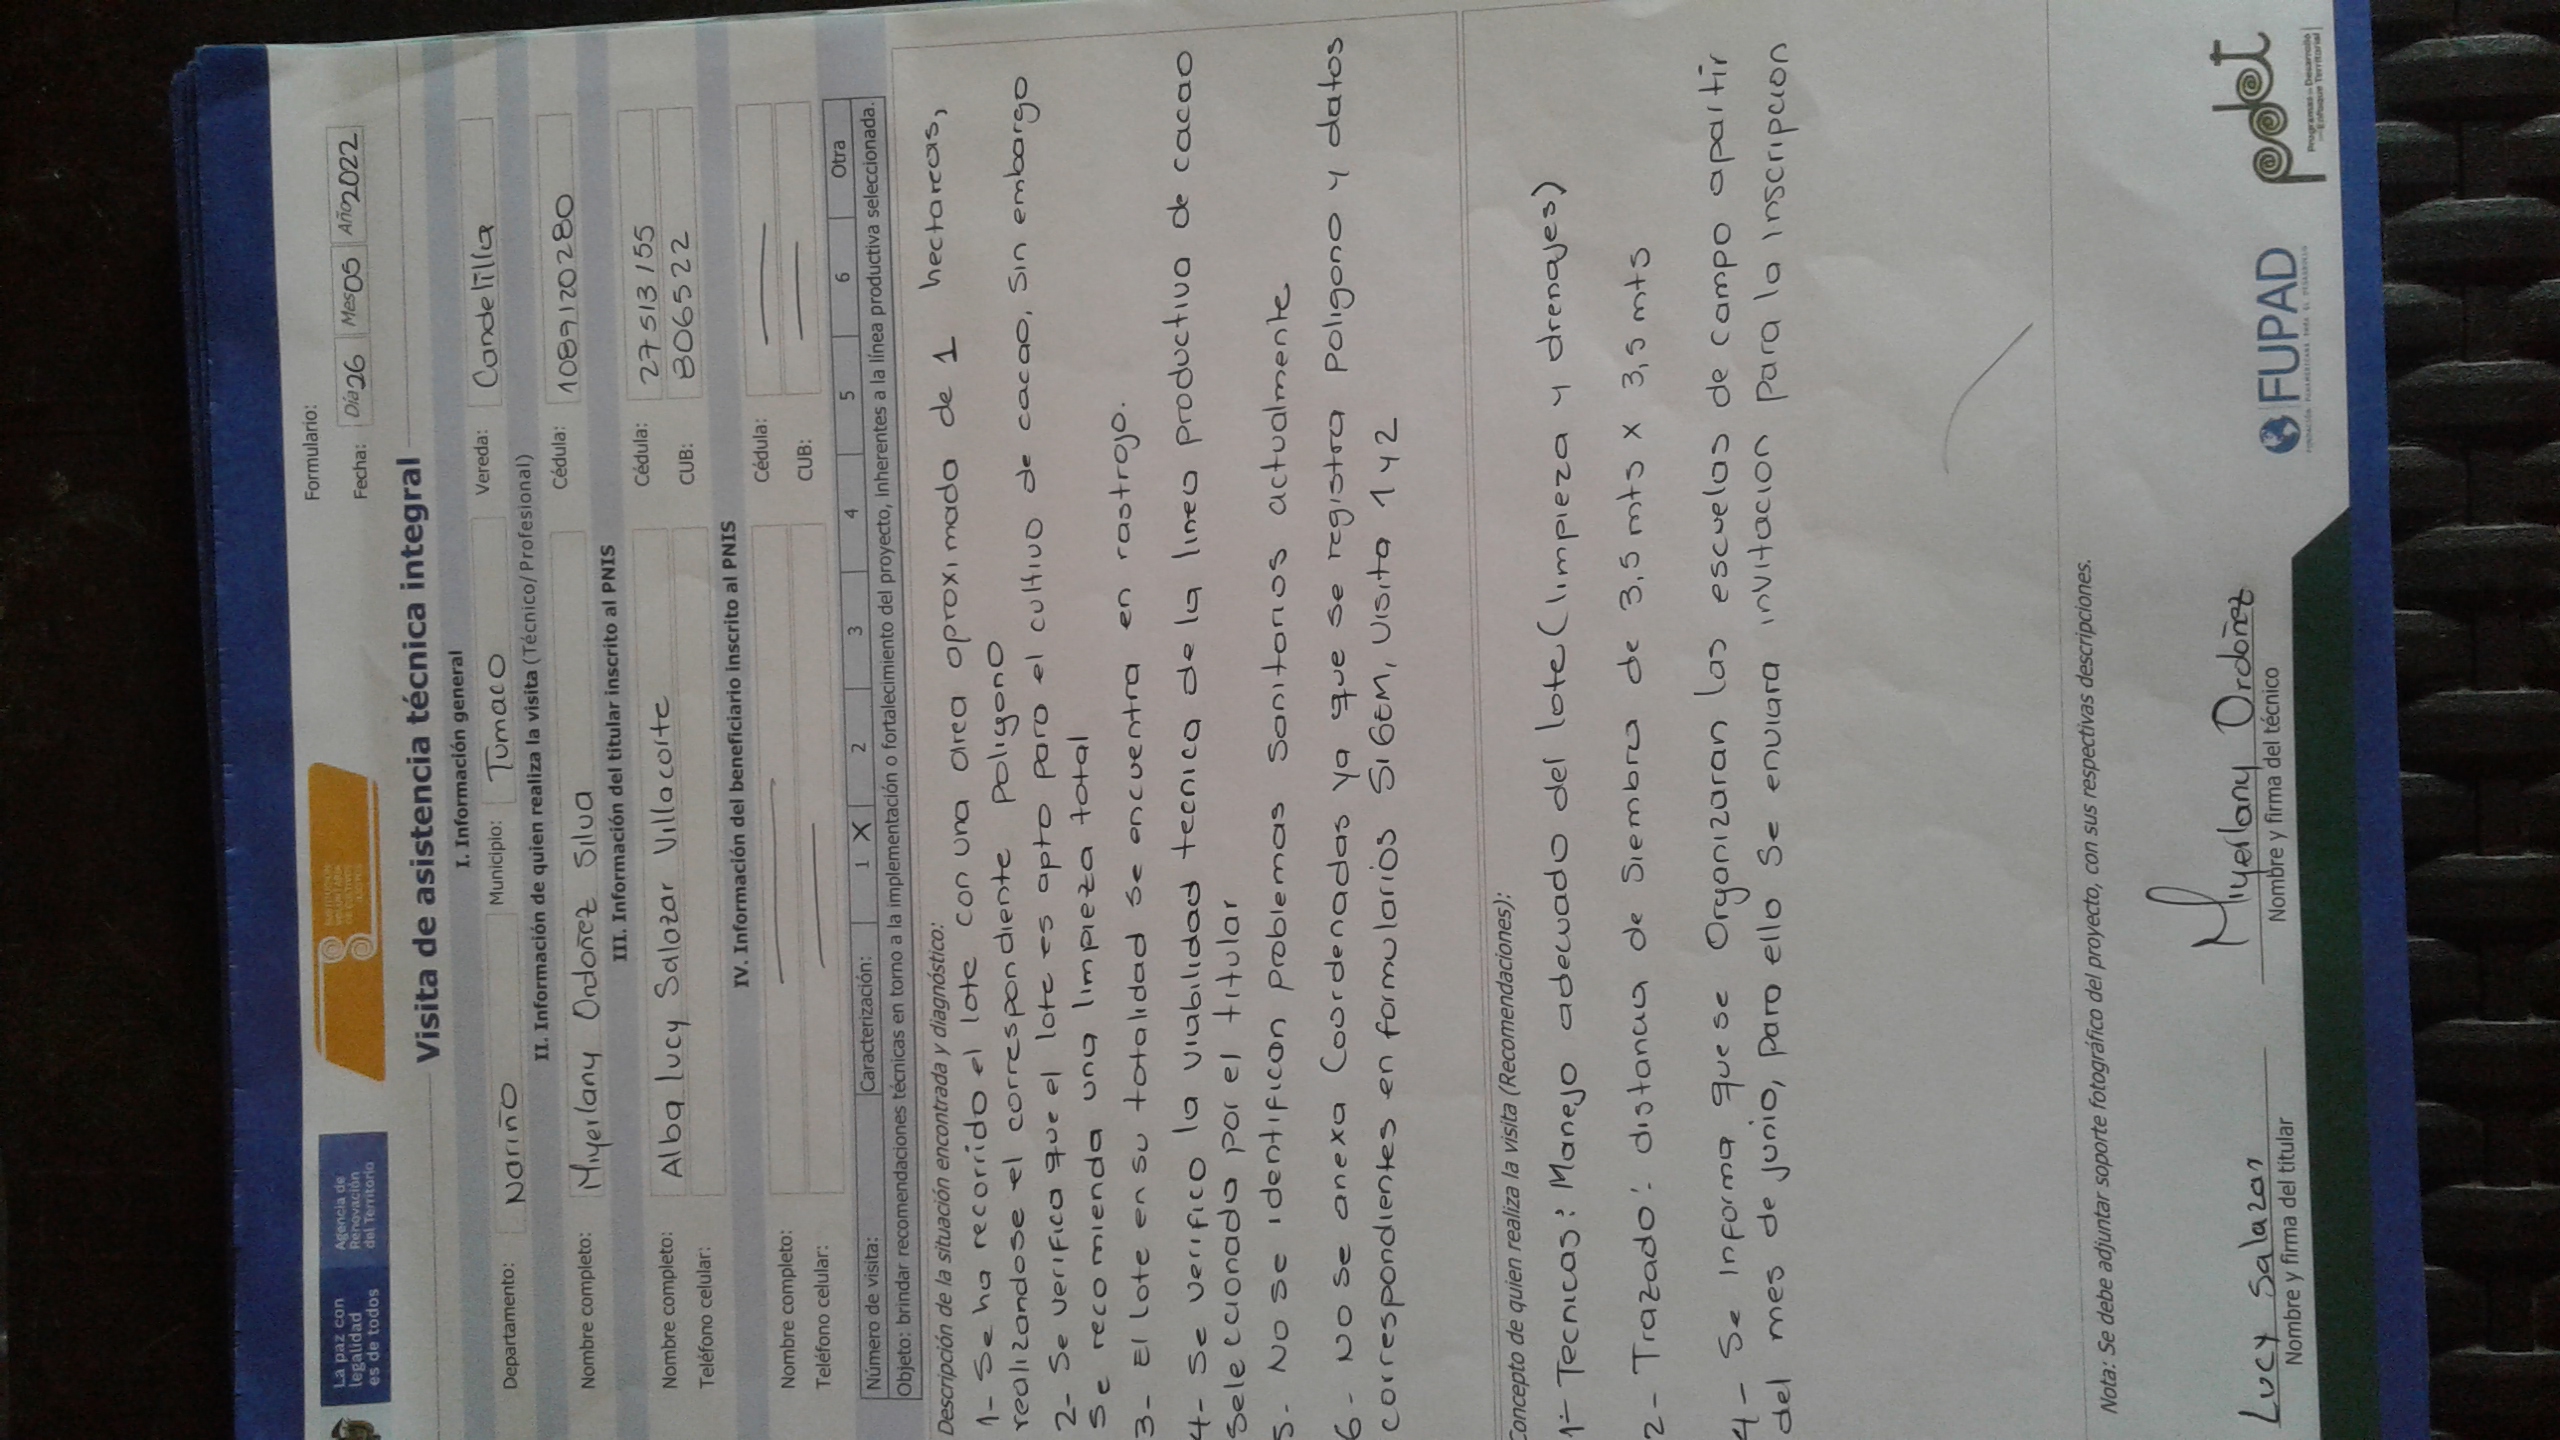 La paz con
legalidad
es de todos
Agencia de
Renovación
del Territorio
Formulario:
Fecha: Día 26 Mes 05 Año 2022
Visita de asistencia técnica integral
I. Información general
Departamento: Nariño Municipio: Tumaco Vereda: Candelilla
II. Información de quien realiza la visita (Técnico/Profesional)
Nombre completo: Miyerlany Ordoñez Silva Cédula: 1089120280
III. Información del titular inscrito al PNIS
Nombre completo: Alba Lucy Salazar Villacorte Cédula: 27513155
Teléfono celular: CUB: 806522
IV. Información del beneficiario inscrito al PNIS
Nombre completo: Cédula:
Teléfono celular: CUB:
Número de visita: Caracterización: 1 X 2 3 4 5 6 Otra
Objeto: brindar recomendaciones técnicas en torno a la implementación o fortalecimiento del proyecto, inherentes a la línea productiva seleccionada.
Descripción de la situación encontrada y diagnóstico:
1- Se ha recorrido el lote con una area aproximada de 1 hectareas,
realizandose el correspondiente poligono
2- Se verifica que el lote es apto para el cultivo de cacao, sin embargo
se recomienda una limpieza total
3- El lote en su totalidad se encuentra en rastrojo.
4- Se verifico la viabilidad tecnica de la linea productiva de cacao
seleccionada por el titular
5- No se identifican problemas sanitarios actualmente
6- No se anexa Coordenadas ya que se registra poligono y datos
correspondientes en formularios SIGEM, visita 1 y 2
Concepto de quien realiza la visita (Recomendaciones):
1- Tecnicas: Manejo adecuado del lote (limpieza y drenajes)
2- Trazado: distancia de siembra de 3.5 mts x 3,5 mts
4- Se informa que se Organizaran las escuelas de campo apartir
del mes de junio, para ello se enviara invitacion para la inscripcion
Nota: Se debe adjuntar soporte fotográfico del proyecto, con sus respectivas descripciones.
Lucy Salazar
Nombre y firma del titular
Miyerlany Ordoñez
Nombre y firma del técnico
FUPAD
pdet
Programas de Desarrollo
con Enfoque Territorial